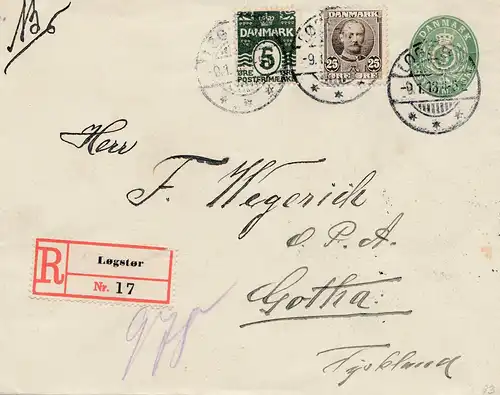 No 6
DANMARK
5
ØRE ØRE
POSTFRIMÆRKE
DANMARK
25 25
ØRE ØRE
DANMARK
Herr
F. Wegerich
O. P. A.
Gotha.
Tyskland
R
Løgstør
Nr. 17